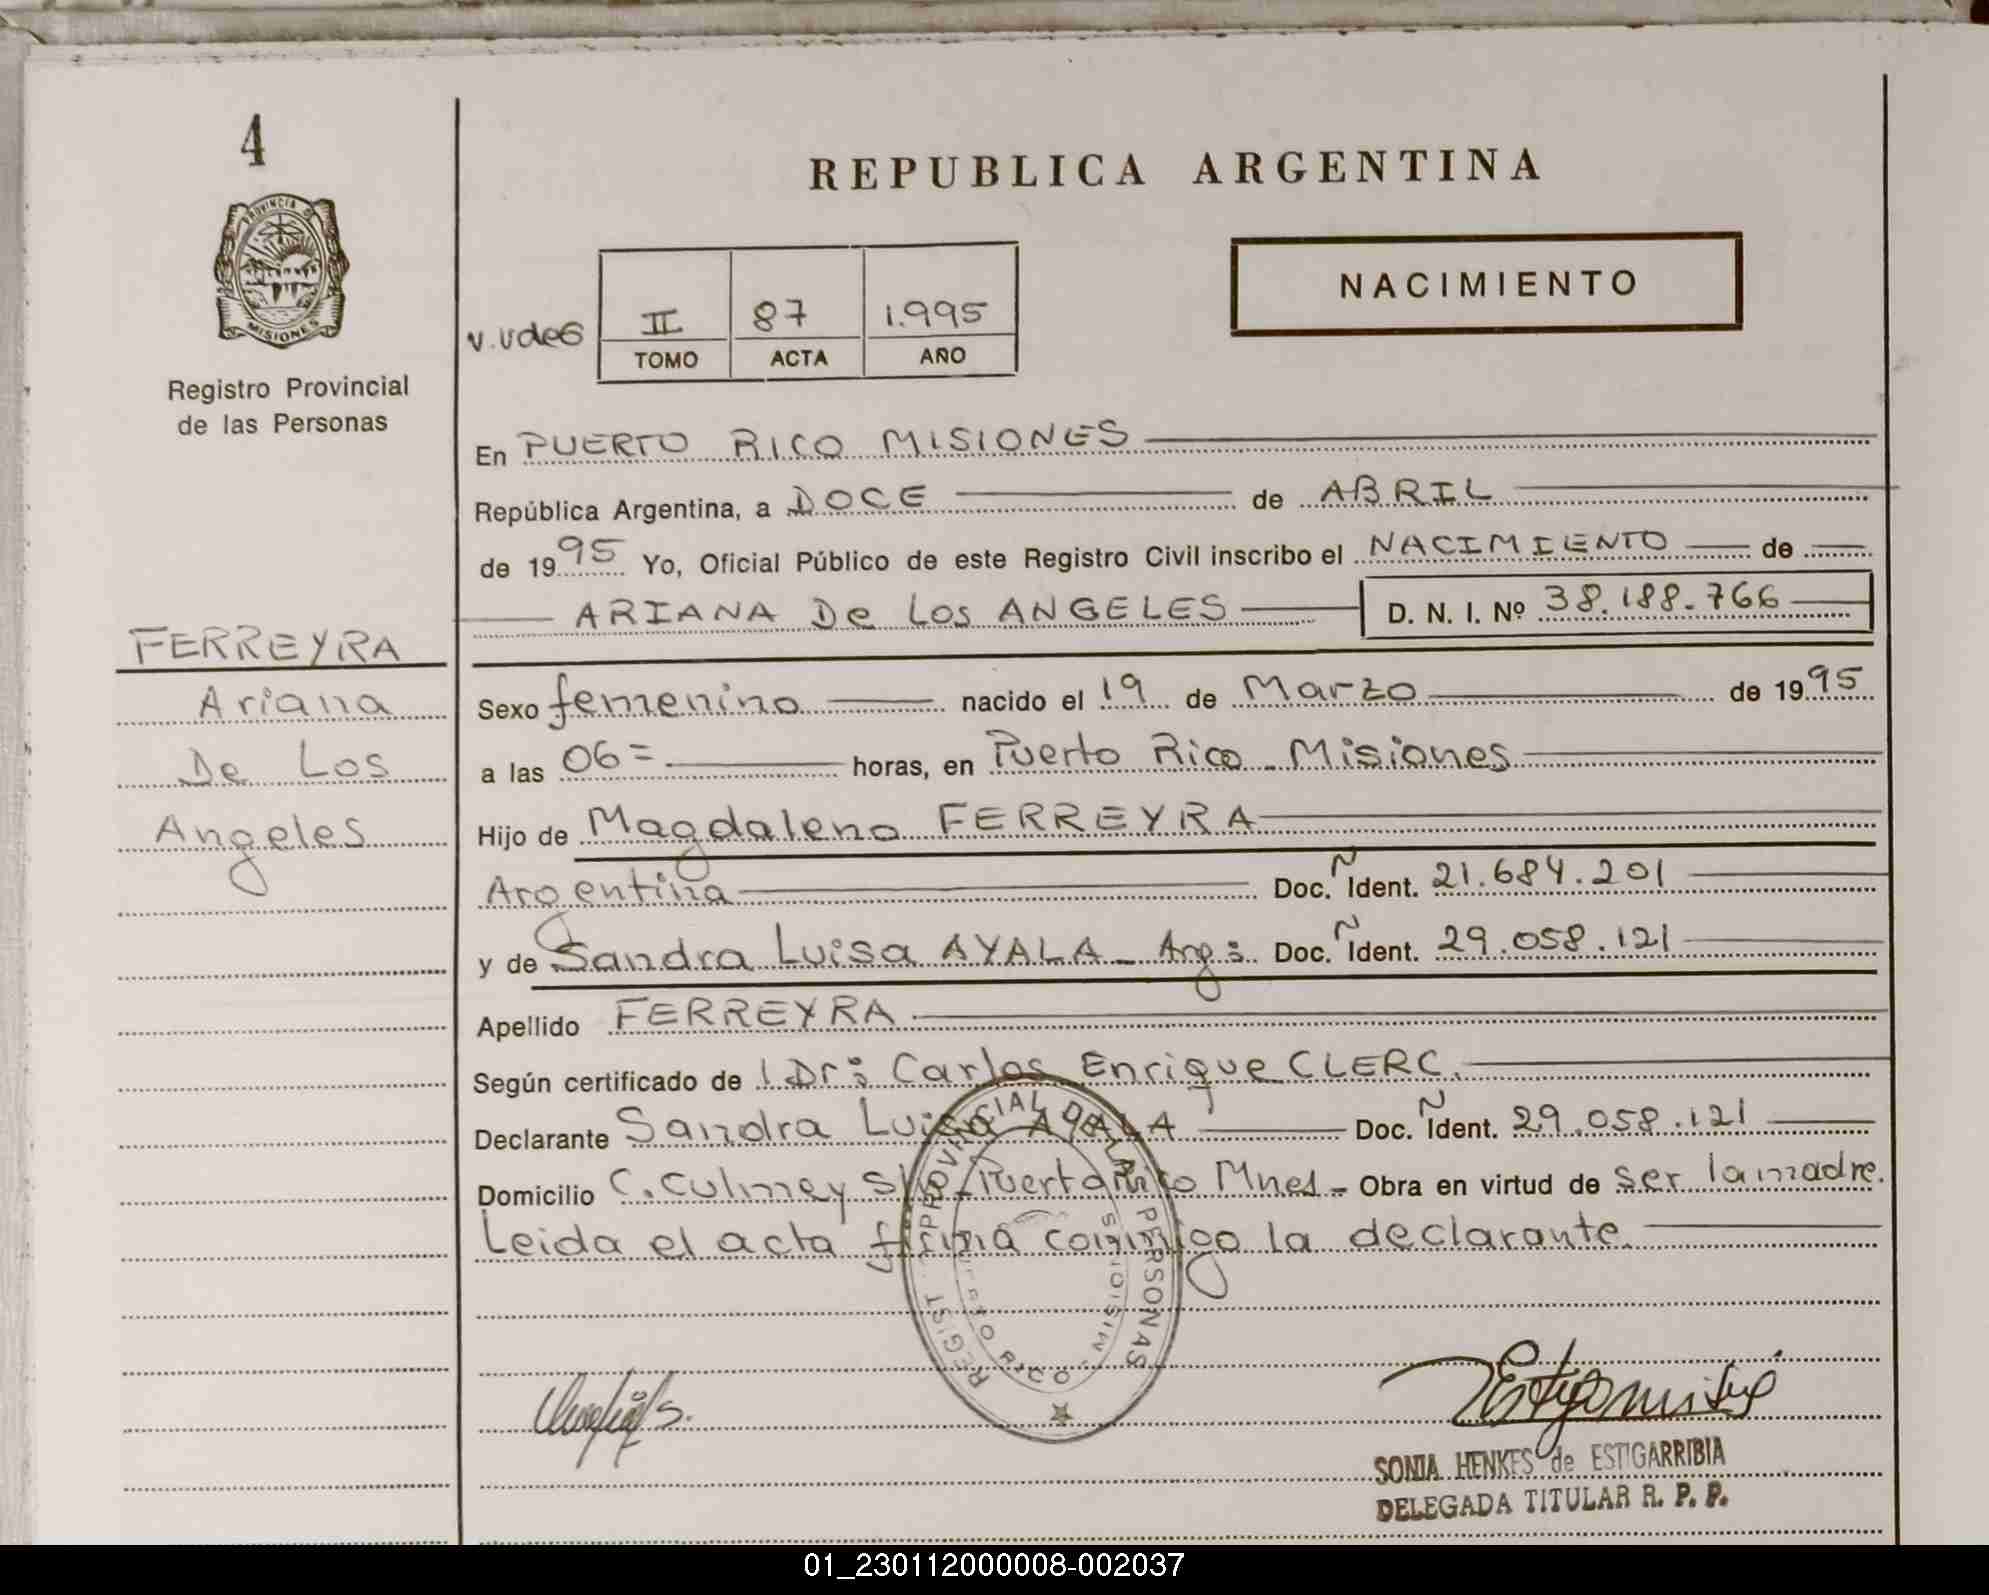 4
PROVINCIA DE
MISIONES
Registro Provincial
de las Personas
FERREYRA
Ariana
De Los
Angeles
REPUBLICA ARGENTINA
II 87 1.995
TOMO ACTA AÑO
NACIMIENTO
En PUERTO RICO MISIONES
República Argentina, a DOCE de ABRIL
de 1995 Yo, Oficial Público de este Registro Civil inscribo el NACIMIENTO de
ARIANA De Los ANGELES D. N. I. Nº 38.188.766
Sexo femenino nacido el 19 de Marzo de 1995
a las 06= horas, en Puerto Rico - Misiones
Hijo de Magdaleno FERREYRA
Argentina Doc. Ñ Ident. 21.684.201
y de Sandra Luisa AYALA - Arg: Doc. Ñ Ident. 29.058.121
Apellido FERREYRA
Según certificado de Dr: Carlos Enrique CLERC.
Declarante Sandra Luisa AYALA Doc. Ñ Ident. 29.058.121
Domicilio C. Culmey S/Nº - Puerto Rico Mnes - Obra en virtud de ser la madre.
Leida el acta firma conmigo la declarante.
REGIST. PROVINCIAL DE LAS PERSONAS
PUERTO RICO - MISIONES
SONIA HENKES de ESTIGARRIBIA
DELEGADA TITULAR R. P. P.
01_230112000008-002037